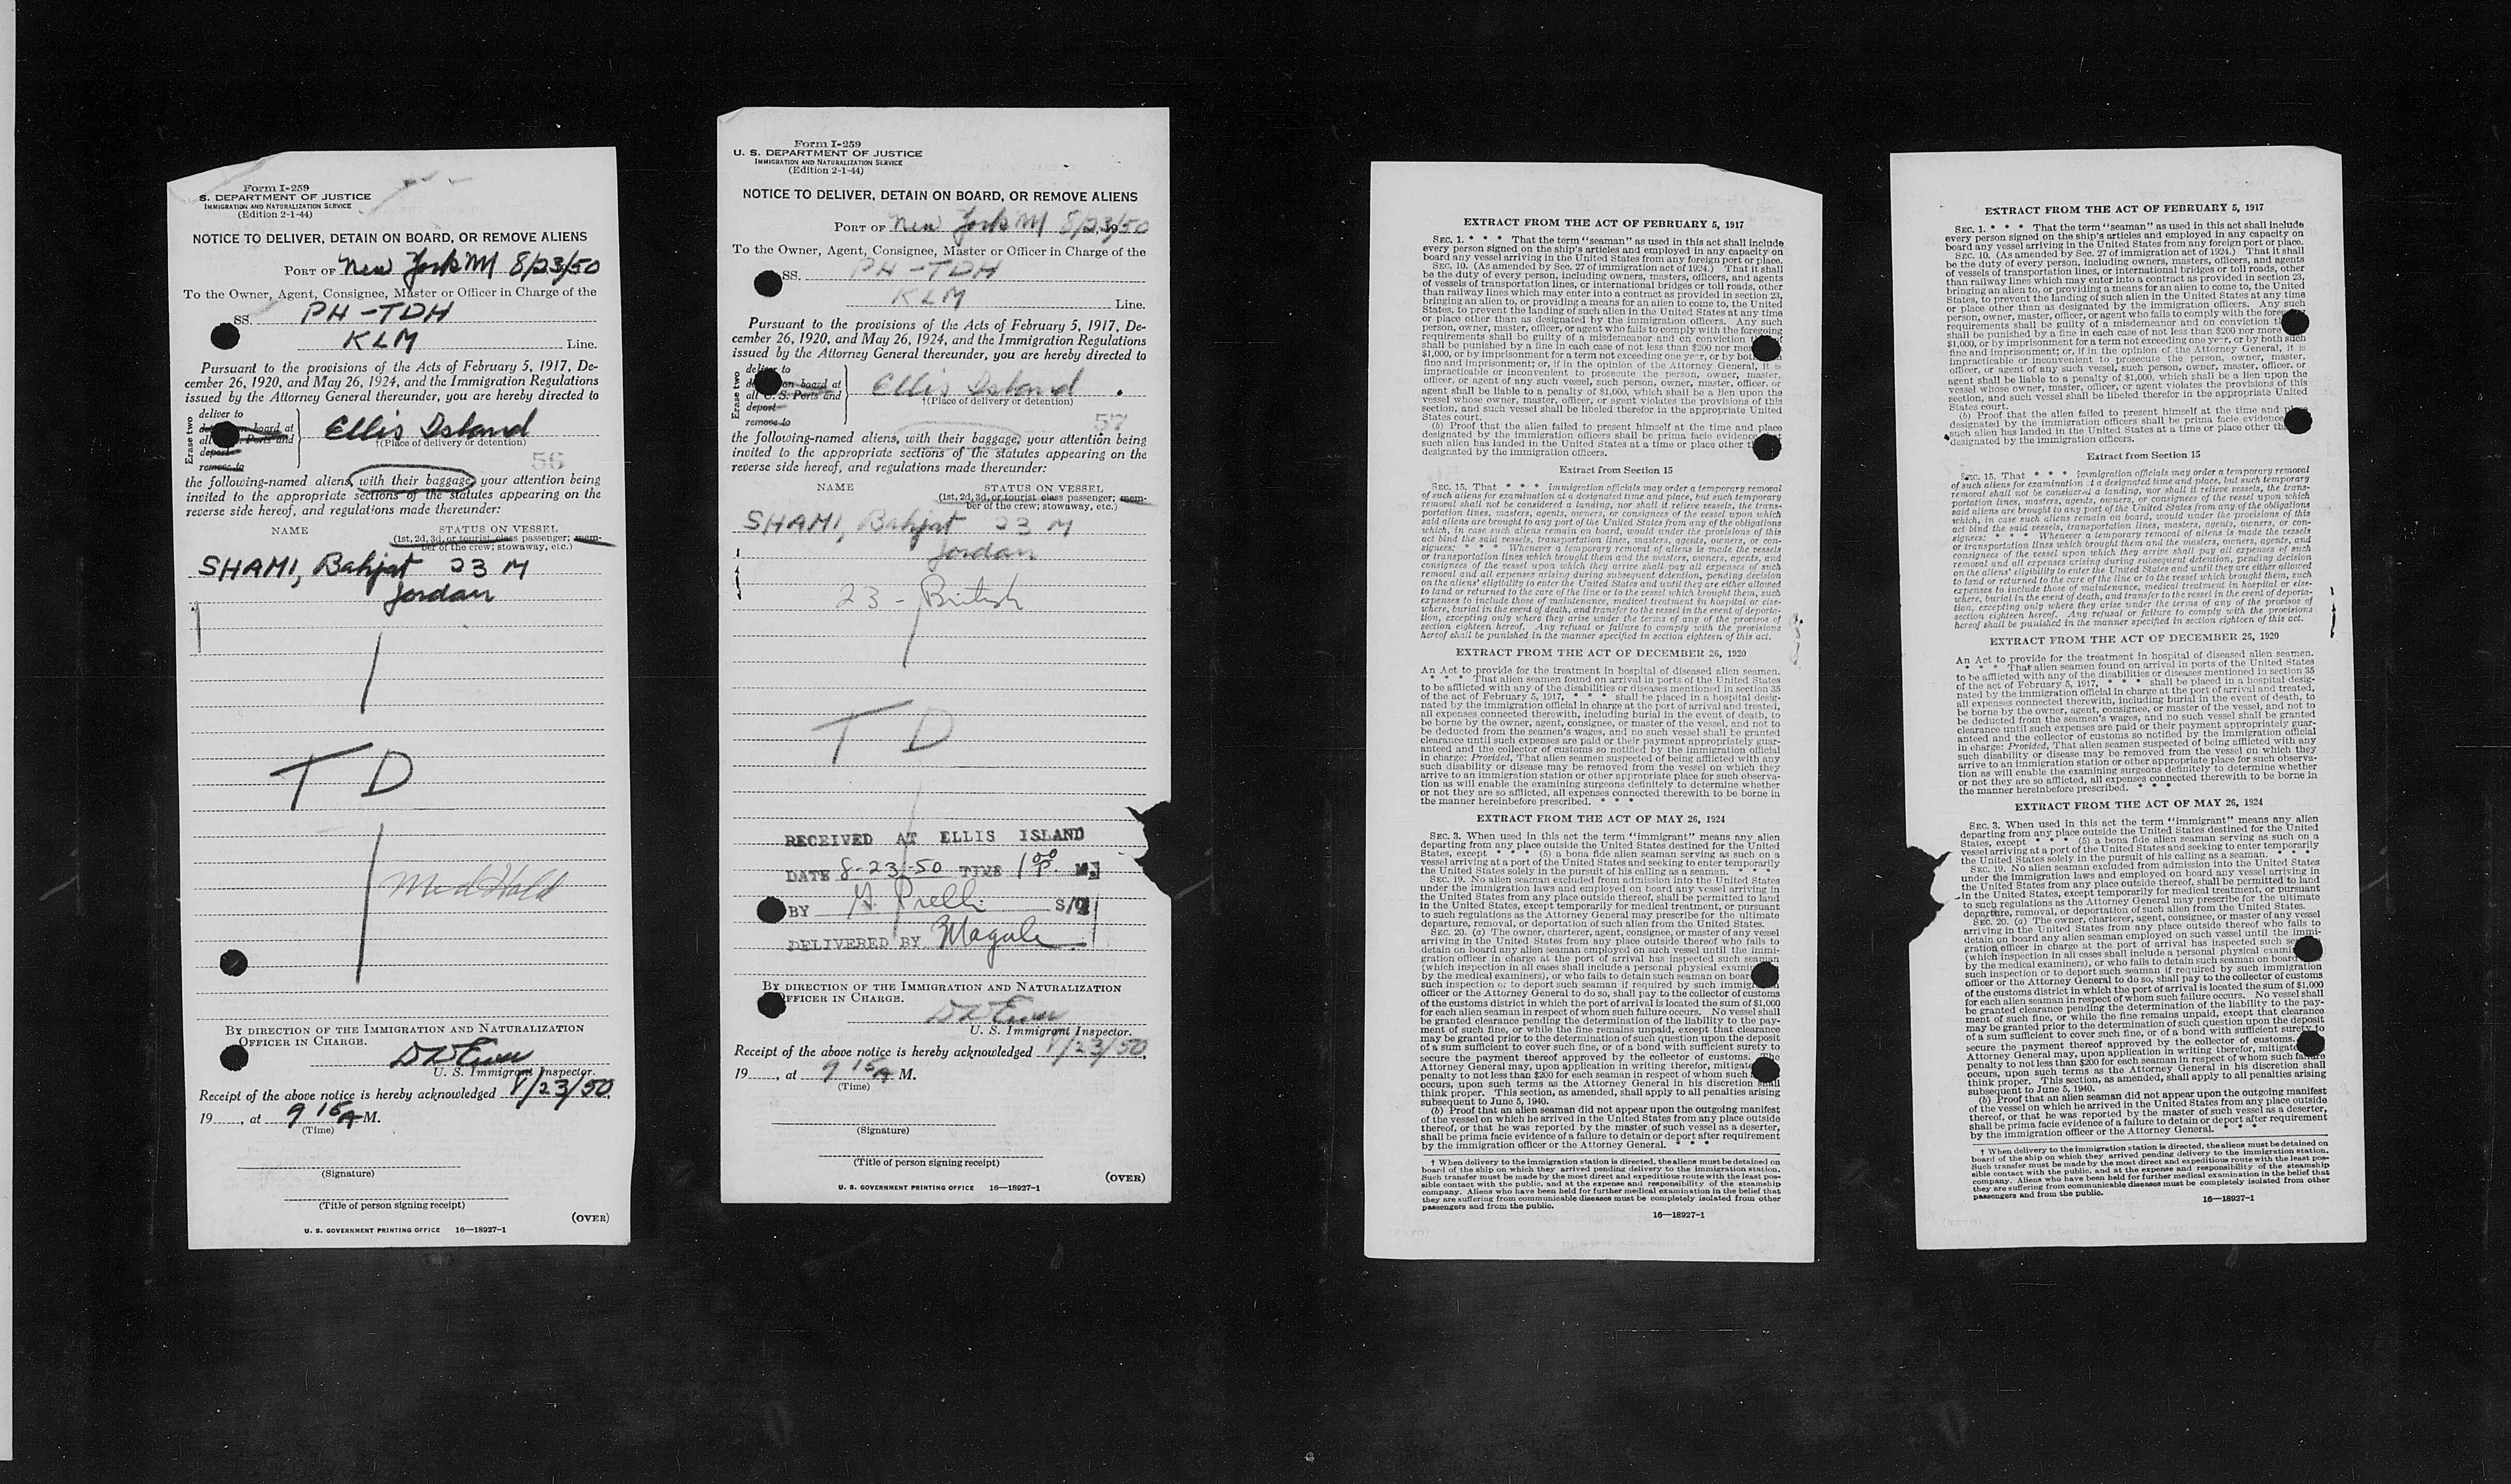 Form I-259
S. DEPARTMENT OF JUSTICE
IMMIGRATION AND NATURALIZATION SERVICE
(Edition 2-1-44)
NOTICE TO DELIVER, DETAIN ON BOARD, OR REMOVE ALIENS
PORT OF New York NY 8/23/50
To the Owner, Agent, Consignee, Master or Officer in Charge of the
SS. PH-TDH
KLM Line.
Pursuant to the provisions of the Acts of February 5, 1917, De-
cember 26, 1920, and May 26, 1924, and the Immigration Regulations
issued by the Attorney General thereunder, you are hereby directed to
Erase two
deliver to
on board at
all Ports and
deport
remove to
Ellis Island
†(Place of delivery or detention)
56
the following-named aliens, with their baggage, your attention being
invited to the appropriate sections of the statutes appearing on the
reverse side hereof, and regulations made thereunder:
NAME STATUS ON VESSEL
(1st, 2d, 3d, or tourist class passenger; mem-
ber of the crew; stowaway, etc.)
SHAMI, Bahjat 23 M
Jordan
T D
Med Hold
BY DIRECTION OF THE IMMIGRATION AND NATURALIZATION
OFFICER IN CHARGE.
U. S. Immigrant Inspector.
Receipt of the above notice is hereby acknowledged 8/23/50,
19____, at 9 15 A M.
(Time)
(Signature)
(Title of person signing receipt)
(OVER)
U. S. GOVERNMENT PRINTING OFFICE 16—18927-1
Form I-259
U. S. DEPARTMENT OF JUSTICE
IMMIGRATION AND NATURALIZATION SERVICE
(Edition 2-1-44)
NOTICE TO DELIVER, DETAIN ON BOARD, OR REMOVE ALIENS
PORT OF New York NY 8/23, 1950
To the Owner, Agent, Consignee, Master or Officer in Charge of the
SS. PH-TDH
KLM Line.
Pursuant to the provisions of the Acts of February 5, 1917, De-
cember 26, 1920, and May 26, 1924, and the Immigration Regulations
issued by the Attorney General thereunder, you are hereby directed to
Erase two
deliver to
on board at
all U. S. Ports and
deport
remove to
Ellis Island
†(Place of delivery or detention)
57
the following-named aliens, with their baggage, your attention being
invited to the appropriate sections of the statutes appearing on the
reverse side hereof, and regulations made thereunder:
NAME STATUS ON VESSEL
(1st, 2d, 3d, or tourist class passenger; mem-
ber of the crew; stowaway, etc.)
SHAMI, Bahjat 23 M
Jordan
23 - British
T D
RECEIVED AT ELLIS ISLAND
DATE 8-23-50 TIME 1 00 P. M.
BY
DELIVERED BY
BY DIRECTION OF THE IMMIGRATION AND NATURALIZATION
OFFICER IN CHARGE.
U. S. Immigrant Inspector.
Receipt of the above notice is hereby acknowledged 8/23/50,
19____, at 9 15 A M.
(Time)
(Signature)
(Title of person signing receipt)
(OVER)
U. S. GOVERNMENT PRINTING OFFICE 16—18927-1
EXTRACT FROM THE ACT OF FEBRUARY 5, 1917
SEC. 1. * * * That the term "seaman" as used in this act shall include
every person signed on the ship's articles and employed in any capacity on
board any vessel arriving in the United States from any foreign port or place.
SEC. 10. (As amended by Sec. 27 of immigration act of 1924.) That it shall
be the duty of every person, including owners, masters, officers, and agents
of vessels of transportation lines, or international bridges or toll roads, other
than railway lines which may enter into a contract as provided in section 23,
bringing an alien to, or providing a means for an alien to come to, the United
States, to prevent the landing of such alien in the United States at any time
or place other than as designated by the immigration officers. Any such
person, owner, master, officer, or agent who fails to comply with the foregoing
requirements shall be guilty of a misdemeanor and on conviction
shall be punished by a fine in each case of not less than $200 nor more
$1,000, or by imprisonment for a term not exceeding one year, or by both
fine and imprisonment; or, if in the opinion of the Attorney General, it is
impracticable or inconvenient to prosecute the person, owner, master,
officer, or agent of any such vessel, such person, owner, master, officer, or
agent shall be liable to a penalty of $1,000, which shall be a lien upon the
vessel whose owner, master, officer, or agent violates the provisions of this
section, and such vessel shall be libeled therefor in the appropriate United
States court.
(b) Proof that the alien failed to present himself at the time and place
designated by the immigration officers shall be prima facie evidence
such alien has landed in the United States at a time or place other
designated by the immigration officers.
Extract from Section 15
SEC. 15. That * * * immigration officials may order a temporary removal
of such aliens for examination at a designated time and place, but such temporary
removal shall not be considered a landing, nor shall it relieve vessels, the trans-
portation lines, masters, agents, owners, or consignees of the vessel upon which
said aliens are brought to any port of the United States from any of the obligations
which, in case such aliens remain on board, would under the provisions of this
act bind the said vessels, transportation lines, masters, agents, owners, or con-
signees: * * * Whenever a temporary removal of aliens is made the vessels
or transportation lines which brought them and the masters, owners, agents, and
consignees of the vessel upon which they arrive shall pay all expenses of such
removal and all expenses arising during subsequent detention, pending decision
on the aliens' eligibility to enter the United States and until they are either allowed
to land or returned to the care of the line or to the vessel which brought them, such
expenses to include those of maintenance, medical treatment in hospital or else-
where, burial in the event of death, and transfer to the vessel in the event of deporta-
tion, excepting only where they arise under the terms of any of the provisos of
section eighteen hereof. Any refusal or failure to comply with the provisions
hereof shall be punished in the manner specified in section eighteen of this act.
EXTRACT FROM THE ACT OF DECEMBER 26, 1920
An Act to provide for the treatment in hospital of diseased alien seamen.
* * * That alien seamen found on arrival in ports of the United States
to be afflicted with any of the disabilities or diseases mentioned in section 35
of the act of February 5, 1917, * * * shall be placed in a hospital desig-
nated by the immigration official in charge at the port of arrival and treated,
all expenses connected therewith, including burial in the event of death, to
be borne by the owner, agent, consignee, or master of the vessel, and not to
be deducted from the seamen's wages, and no such vessel shall be granted
clearance until such expenses are paid or their payment appropriately guar-
anteed and the collector of customs so notified by the immigration official
in charge: Provided, That alien seamen suspected of being afflicted with any
such disability or disease may be removed from the vessel on which they
arrive to an immigration station or other appropriate place for such observa-
tion as will enable the examining surgeons definitely to determine whether
or not they are so afflicted, all expenses connected therewith to be borne in
the manner hereinbefore prescribed. * * *
EXTRACT FROM THE ACT OF MAY 26, 1924
SEC. 3. When used in this act the term "immigrant" means any alien
departing from any place outside the United States destined for the United
States, except * * * (5) a bona fide alien seaman serving as such on a
vessel arriving at a port of the United States and seeking to enter temporarily
the United States solely in the pursuit of his calling as a seaman. * * *
SEC. 19. No alien seaman excluded from admission into the United States
under the immigration laws and employed on board any vessel arriving in
the United States from any place outside thereof, shall be permitted to land
in the United States, except temporarily for medical treatment, or pursuant
to such regulations as the Attorney General may prescribe for the ultimate
departure, removal, or deportation of such alien from the United States.
SEC. 20. (a) The owner, charterer, agent, consignee, or master of any vessel
arriving in the United States from any place outside thereof who fails to
detain on board any alien seaman employed on such vessel until the immi-
gration officer in charge at the port of arrival has inspected such seaman
(which inspection in all cases shall include a personal physical
by the medical examiners), or who fails to detain such seaman on board
such inspection or to deport such seaman if required by such
officer or the Attorney General to do so, shall pay to the collector of customs
of the customs district in which the port of arrival is located the sum of $1,000
for each alien seaman in respect of whom such failure occurs. No vessel shall
be granted clearance pending the determination of the liability to the pay-
ment of such fine, or while the fine remains unpaid, except that clearance
may be granted prior to the determination of such question upon the deposit
of a sum sufficient to cover such fine, or of a bond with sufficient surety to
secure the payment thereof approved by the collector of customs. The
Attorney General may, upon application in writing therefor, mitigate
penalty to not less than $200 for each seaman in respect of whom such
occurs, upon such terms as the Attorney General in his discretion shall
think proper. This section, as amended, shall apply to all penalties arising
subsequent to June 5, 1940.
(b) Proof that an alien seaman did not appear upon the outgoing manifest
of the vessel on which he arrived in the United States from any place outside
thereof, or that he was reported by the master of such vessel as a deserter,
shall be prima facie evidence of a failure to detain or deport after requirement
by the immigration officer or the Attorney General. * * *
† When delivery to the immigration station is directed, the aliens must be detained on
board of the ship on which they arrived pending delivery to the immigration station.
Such transfer must be made by the most direct and expeditious route with the least pos-
sible contact with the public, and at the expense and responsibility of the steamship
company. Aliens who have been held for further medical examination in the belief that
they are suffering from communicable diseases must be completely isolated from other
passengers and from the public.
16—18927-1
EXTRACT FROM THE ACT OF FEBRUARY 5, 1917
SEC. 1. * * * That the term "seaman" as used in this act shall include
every person signed on the ship's articles and employed in any capacity on
board any vessel arriving in the United States from any foreign port or place.
SEC. 10. (As amended by Sec. 27 of immigration act of 1924.) That it shall
be the duty of every person, including owners, masters, officers, and agents
of vessels of transportation lines, or international bridges or toll roads, other
than railway lines which may enter into a contract as provided in section 23,
bringing an alien to, or providing a means for an alien to come to, the United
States, to prevent the landing of such alien in the United States at any time
or place other than as designated by the immigration officers. Any such
person, owner, master, officer, or agent who fails to comply with the foregoing
requirements shall be guilty of a misdemeanor and on conviction
shall be punished by a fine in each case of not less than $200 nor more
$1,000, or by imprisonment for a term not exceeding one year, or by both such
fine and imprisonment; or, if in the opinion of the Attorney General, it is
impracticable or inconvenient to prosecute the person, owner, master,
officer, or agent of any such vessel, such person, owner, master, officer, or
agent shall be liable to a penalty of $1,000, which shall be a lien upon the
vessel whose owner, master, officer, or agent violates the provisions of this
section, and such vessel shall be libeled therefor in the appropriate United
States court.
(b) Proof that the alien failed to present himself at the time and place
designated by the immigration officers shall be prima facie evidence
such alien has landed in the United States at a time or place other
designated by the immigration officers.
Extract from Section 15
SEC. 15. That * * * immigration officials may order a temporary removal
of such aliens for examination at a designated time and place, but such temporary
removal shall not be considered a landing, nor shall it relieve vessels, the trans-
portation lines, masters, agents, owners, or consignees of the vessel upon which
said aliens are brought to any port of the United States from any of the obligations
which, in case such aliens remain on board, would under the provisions of this
act bind the said vessels, transportation lines, masters, agents, owners, or con-
signees: * * * Whenever a temporary removal of aliens is made the vessels
or transportation lines which brought them and the masters, owners, agents, and
consignees of the vessel upon which they arrive shall pay all expenses of such
removal and all expenses arising during subsequent detention, pending decision
on the aliens' eligibility to enter the United States and until they are either allowed
to land or returned to the care of the line or to the vessel which brought them, such
expenses to include those of maintenance, medical treatment in hospital or else-
where, burial in the event of death, and transfer to the vessel in the event of deporta-
tion, excepting only where they arise under the terms of any of the provisos of
section eighteen hereof. Any refusal or failure to comply with the provisions
hereof shall be punished in the manner specified in section eighteen of this act.
EXTRACT FROM THE ACT OF DECEMBER 26, 1920
An Act to provide for the treatment in hospital of diseased alien seamen.
* * * That alien seamen found on arrival in ports of the United States
to be afflicted with any of the disabilities or diseases mentioned in section 35
of the act of February 5, 1917, * * * shall be placed in a hospital desig-
nated by the immigration official in charge at the port of arrival and treated,
all expenses connected therewith, including burial in the event of death, to
be borne by the owner, agent, consignee, or master of the vessel, and not to
be deducted from the seamen's wages, and no such vessel shall be granted
clearance until such expenses are paid or their payment appropriately guar-
anteed and the collector of customs so notified by the immigration official
in charge: Provided, That alien seamen suspected of being afflicted with any
such disability or disease may be removed from the vessel on which they
arrive to an immigration station or other appropriate place for such observa-
tion as will enable the examining surgeons definitely to determine whether
or not they are so afflicted, all expenses connected therewith to be borne in
the manner hereinbefore prescribed. * * *
EXTRACT FROM THE ACT OF MAY 26, 1924
SEC. 3. When used in this act the term "immigrant" means any alien
departing from any place outside the United States destined for the United
States, except * * * (5) a bona fide alien seaman serving as such on a
vessel arriving at a port of the United States and seeking to enter temporarily
the United States solely in the pursuit of his calling as a seaman. * * *
SEC. 19. No alien seaman excluded from admission into the United States
under the immigration laws and employed on board any vessel arriving in
the United States from any place outside thereof, shall be permitted to land
in the United States, except temporarily for medical treatment, or pursuant
to such regulations as the Attorney General may prescribe for the ultimate
departure, removal, or deportation of such alien from the United States.
SEC. 20. (a) The owner, charterer, agent, consignee, or master of any vessel
arriving in the United States from any place outside thereof who fails to
detain on board any alien seaman employed on such vessel until the immi-
gration officer in charge at the port of arrival has inspected such
(which inspection in all cases shall include a personal physical
by the medical examiners), or who fails to detain such seaman on board
such inspection or to deport such seaman if required by such immigration
officer or the Attorney General to do so, shall pay to the collector of customs
of the customs district in which the port of arrival is located the sum of $1,000
for each alien seaman in respect of whom such failure occurs. No vessel shall
be granted clearance pending the determination of the liability to the pay-
ment of such fine, or while the fine remains unpaid, except that clearance
may be granted prior to the determination of such question upon the deposit
of a sum sufficient to cover such fine, or of a bond with sufficient surety to
secure the payment thereof approved by the collector of customs.
Attorney General may, upon application in writing therefor, mitigate
penalty to not less than $200 for each seaman in respect of whom such failure
occurs, upon such terms as the Attorney General in his discretion shall
think proper. This section, as amended, shall apply to all penalties arising
subsequent to June 5, 1940.
(b) Proof that an alien seaman did not appear upon the outgoing manifest
of the vessel on which he arrived in the United States from any place outside
thereof, or that he was reported by the master of such vessel as a deserter,
shall be prima facie evidence of a failure to detain or deport after requirement
by the immigration officer or the Attorney General. * * *
† When delivery to the immigration station is directed, the aliens must be detained on
board of the ship on which they arrived pending delivery to the immigration station.
Such transfer must be made by the most direct and expeditious route with the least pos-
sible contact with the public, and at the expense and responsibility of the steamship
company. Aliens who have been held for further medical examination in the belief that
they are suffering from communicable diseases must be completely isolated from other
passengers and from the public.
16—18927-1